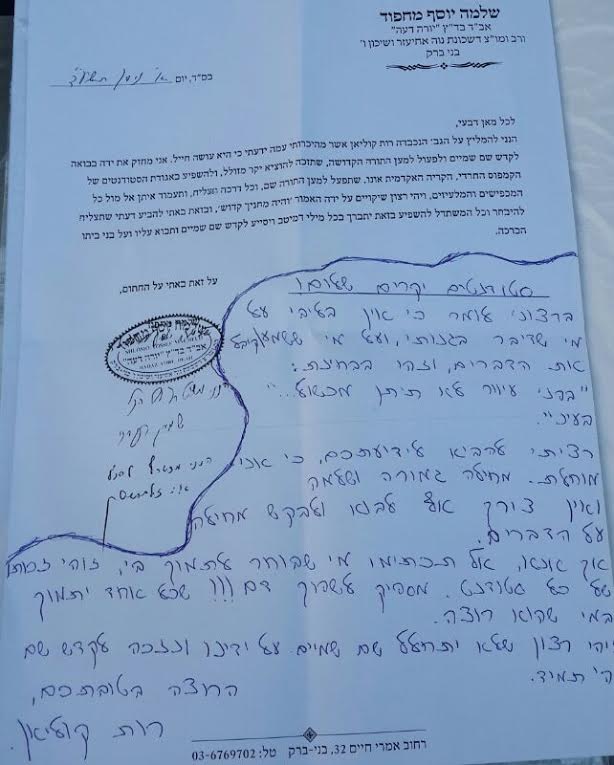 שלמה יוסף מחפוד
אב"ד בד"ץ "יורה דעה"
ורב ומו"צ דשכונת נוה אחיעזר ושיכון ו'
בני ברק
בס"ד, יום א' ניסן תשע"ד
לכל מאן דבעי,
הנני להמליץ על הגב' הנכבדה רות קוליאן אשר מהיכרותי עמה ידעתי כי היא עושה חייל. אני מחזק את ידה בבואה
לקדש שם שמיים ולפעול למען התורה הקדושה, שתזכה להוציא יקר מזולל, ולהשפיע באגודת הסטודנטים של
הקמפוס החרדי, הקריה האקדמית אונו, שתפעל למען התורה שם, וכל דרכה תצליח, ותעמוד איתן אל מול כל
המכפישים והמלעיזים, ויהי רצון שיקויים על ידה האמור "והיה מחניך קדוש", ובזאת באתי להביע דעתי שתצליח
להיבחר וכל המשתדל להשפיע בזאת יתברך בכל מילי דמיטב ויסייע לקדש שם שמיים ותבוא עליו ועל בני ביתו
הברכה.
על זאת באתי על החתום,
שלמה יוסף מחפוד
אב"ד בד"ץ "יורה דעה"
סטודנטים יקרים שלום!
ברצוני לומר כי אין בליבי על
מי שדיבר בגנותי, ועל מי ששמע וקיבל
את הדברים, וזהו בבחינת:
"לפני עיוור לא תיתן מכשול..."
רציתי להביא לידיעתכם, כי אני
מוחלת. מחילה גמורה ושלמה
ואין צורך אף לבוא ולבקש מחילה
על הדברים.
אך אנא, אל תכתימו מי שבוחר לתמוך בי, זוהי זכותו
של כל סטודנט. מספיק לשפוך דם!!! שכל אחד יתמוך
במי שהוא רוצה.
ויהי רצון שלא יתחלל שם שמיים על ידינו ונזכה לקדש שם
ה' תמיד.
הרוצה בטובתכם,
רות קוליאן.
רחוב אמרי חיים 32, בני-ברק טל: 03-6769702